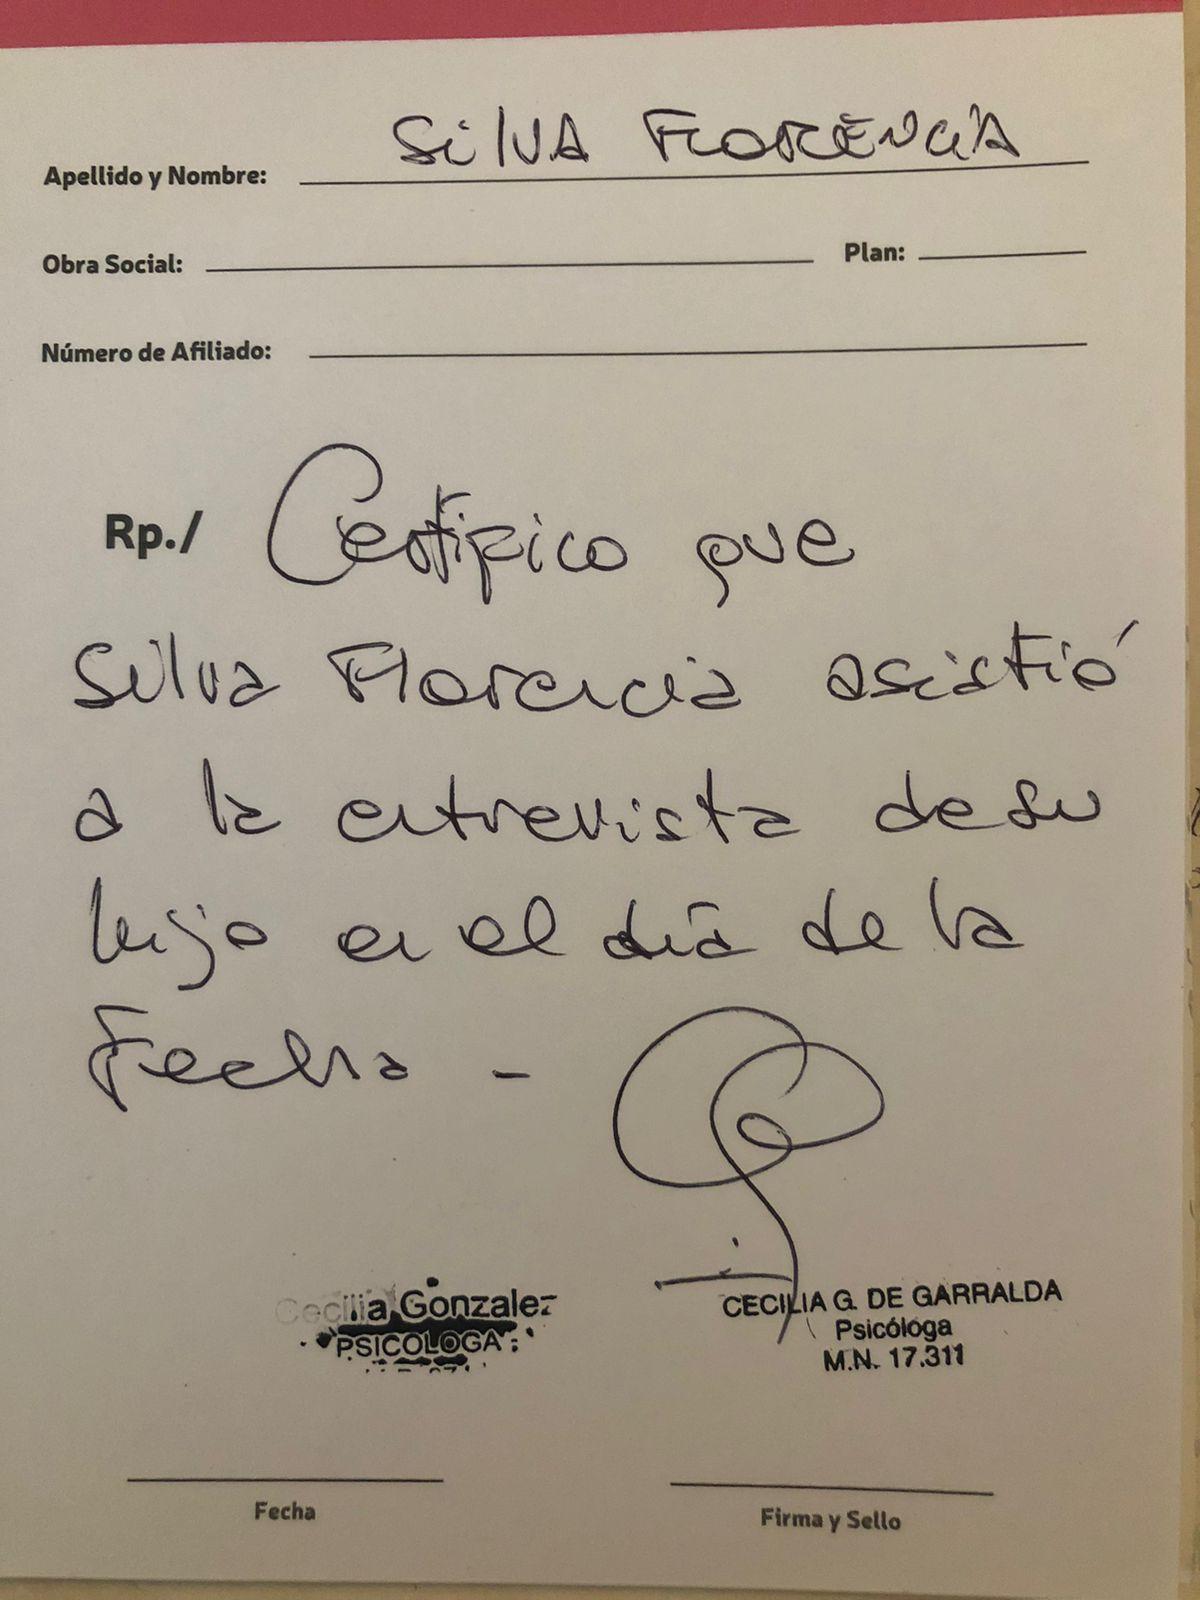 SILVA FLORENCIA
Apellido y Nombre:
Obra Social: Plan:
Número de Afiliado:
Rp./ Certifico que
Silva Florencia asistió
a la entrevista de su
hijo en el día de la
Fecha -
Cecilia Gonzalez
PSICOLOGA
CECILIA G. DE GARRALDA
Psicóloga
M.N. 17.311
Fecha
Firma y Sello